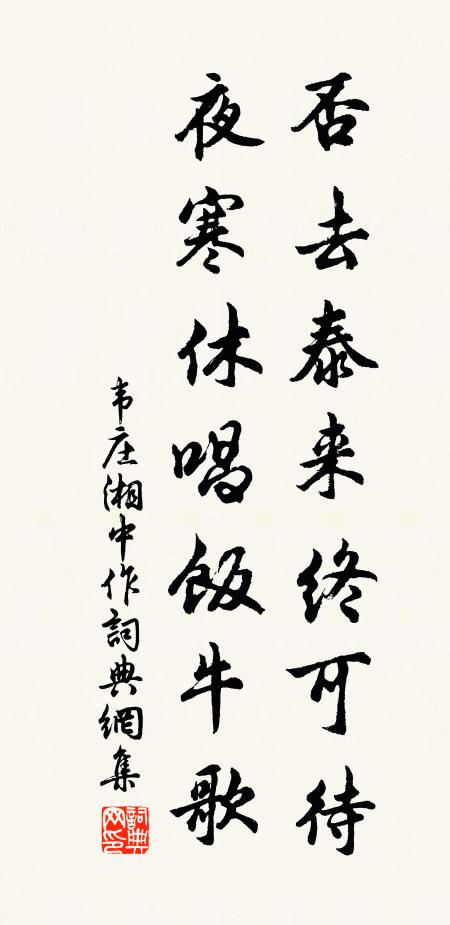 否去泰来终可待
夜寒休唱饭牛歌
韦庄湘中作词典網集
詞典
网印